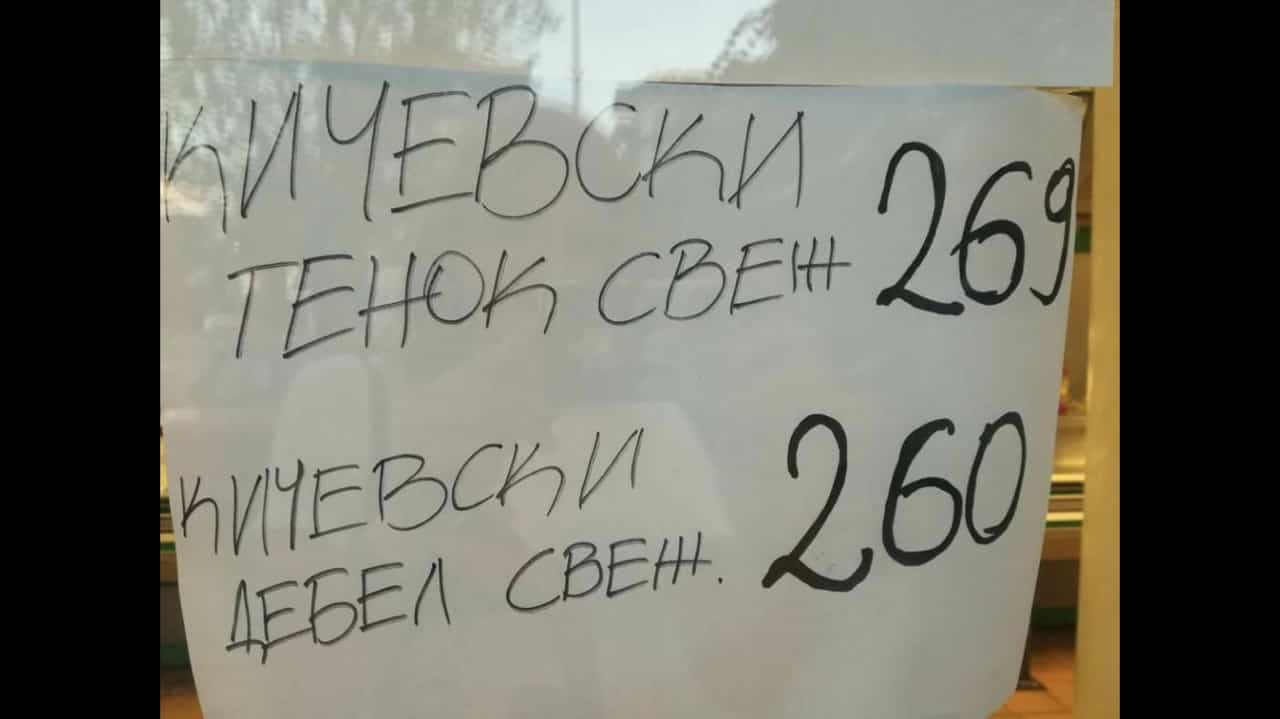 КИЧЕВСКИ
ТЕНОК СВЕЖ 269
КИЧЕВСКИ
ДЕБЕЛ СВЕЖ. 260